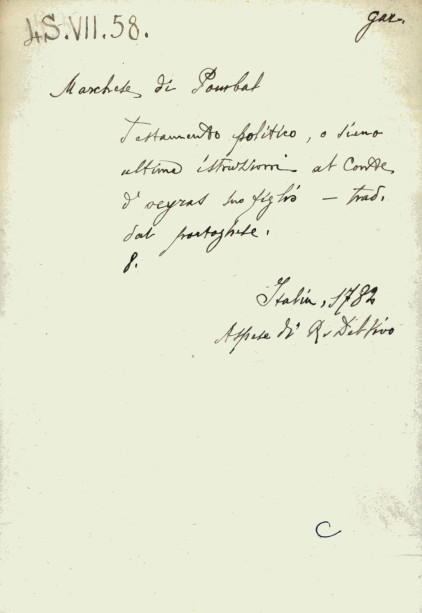 4S.VII.58.
gar.
Marchese di Pombal
Testamento politico, o sieno
ultime istruzioni al Conte
d'oeyras suo figlio – trad.
dal portoghese.
8.
Italia, 1782
A spese di
C